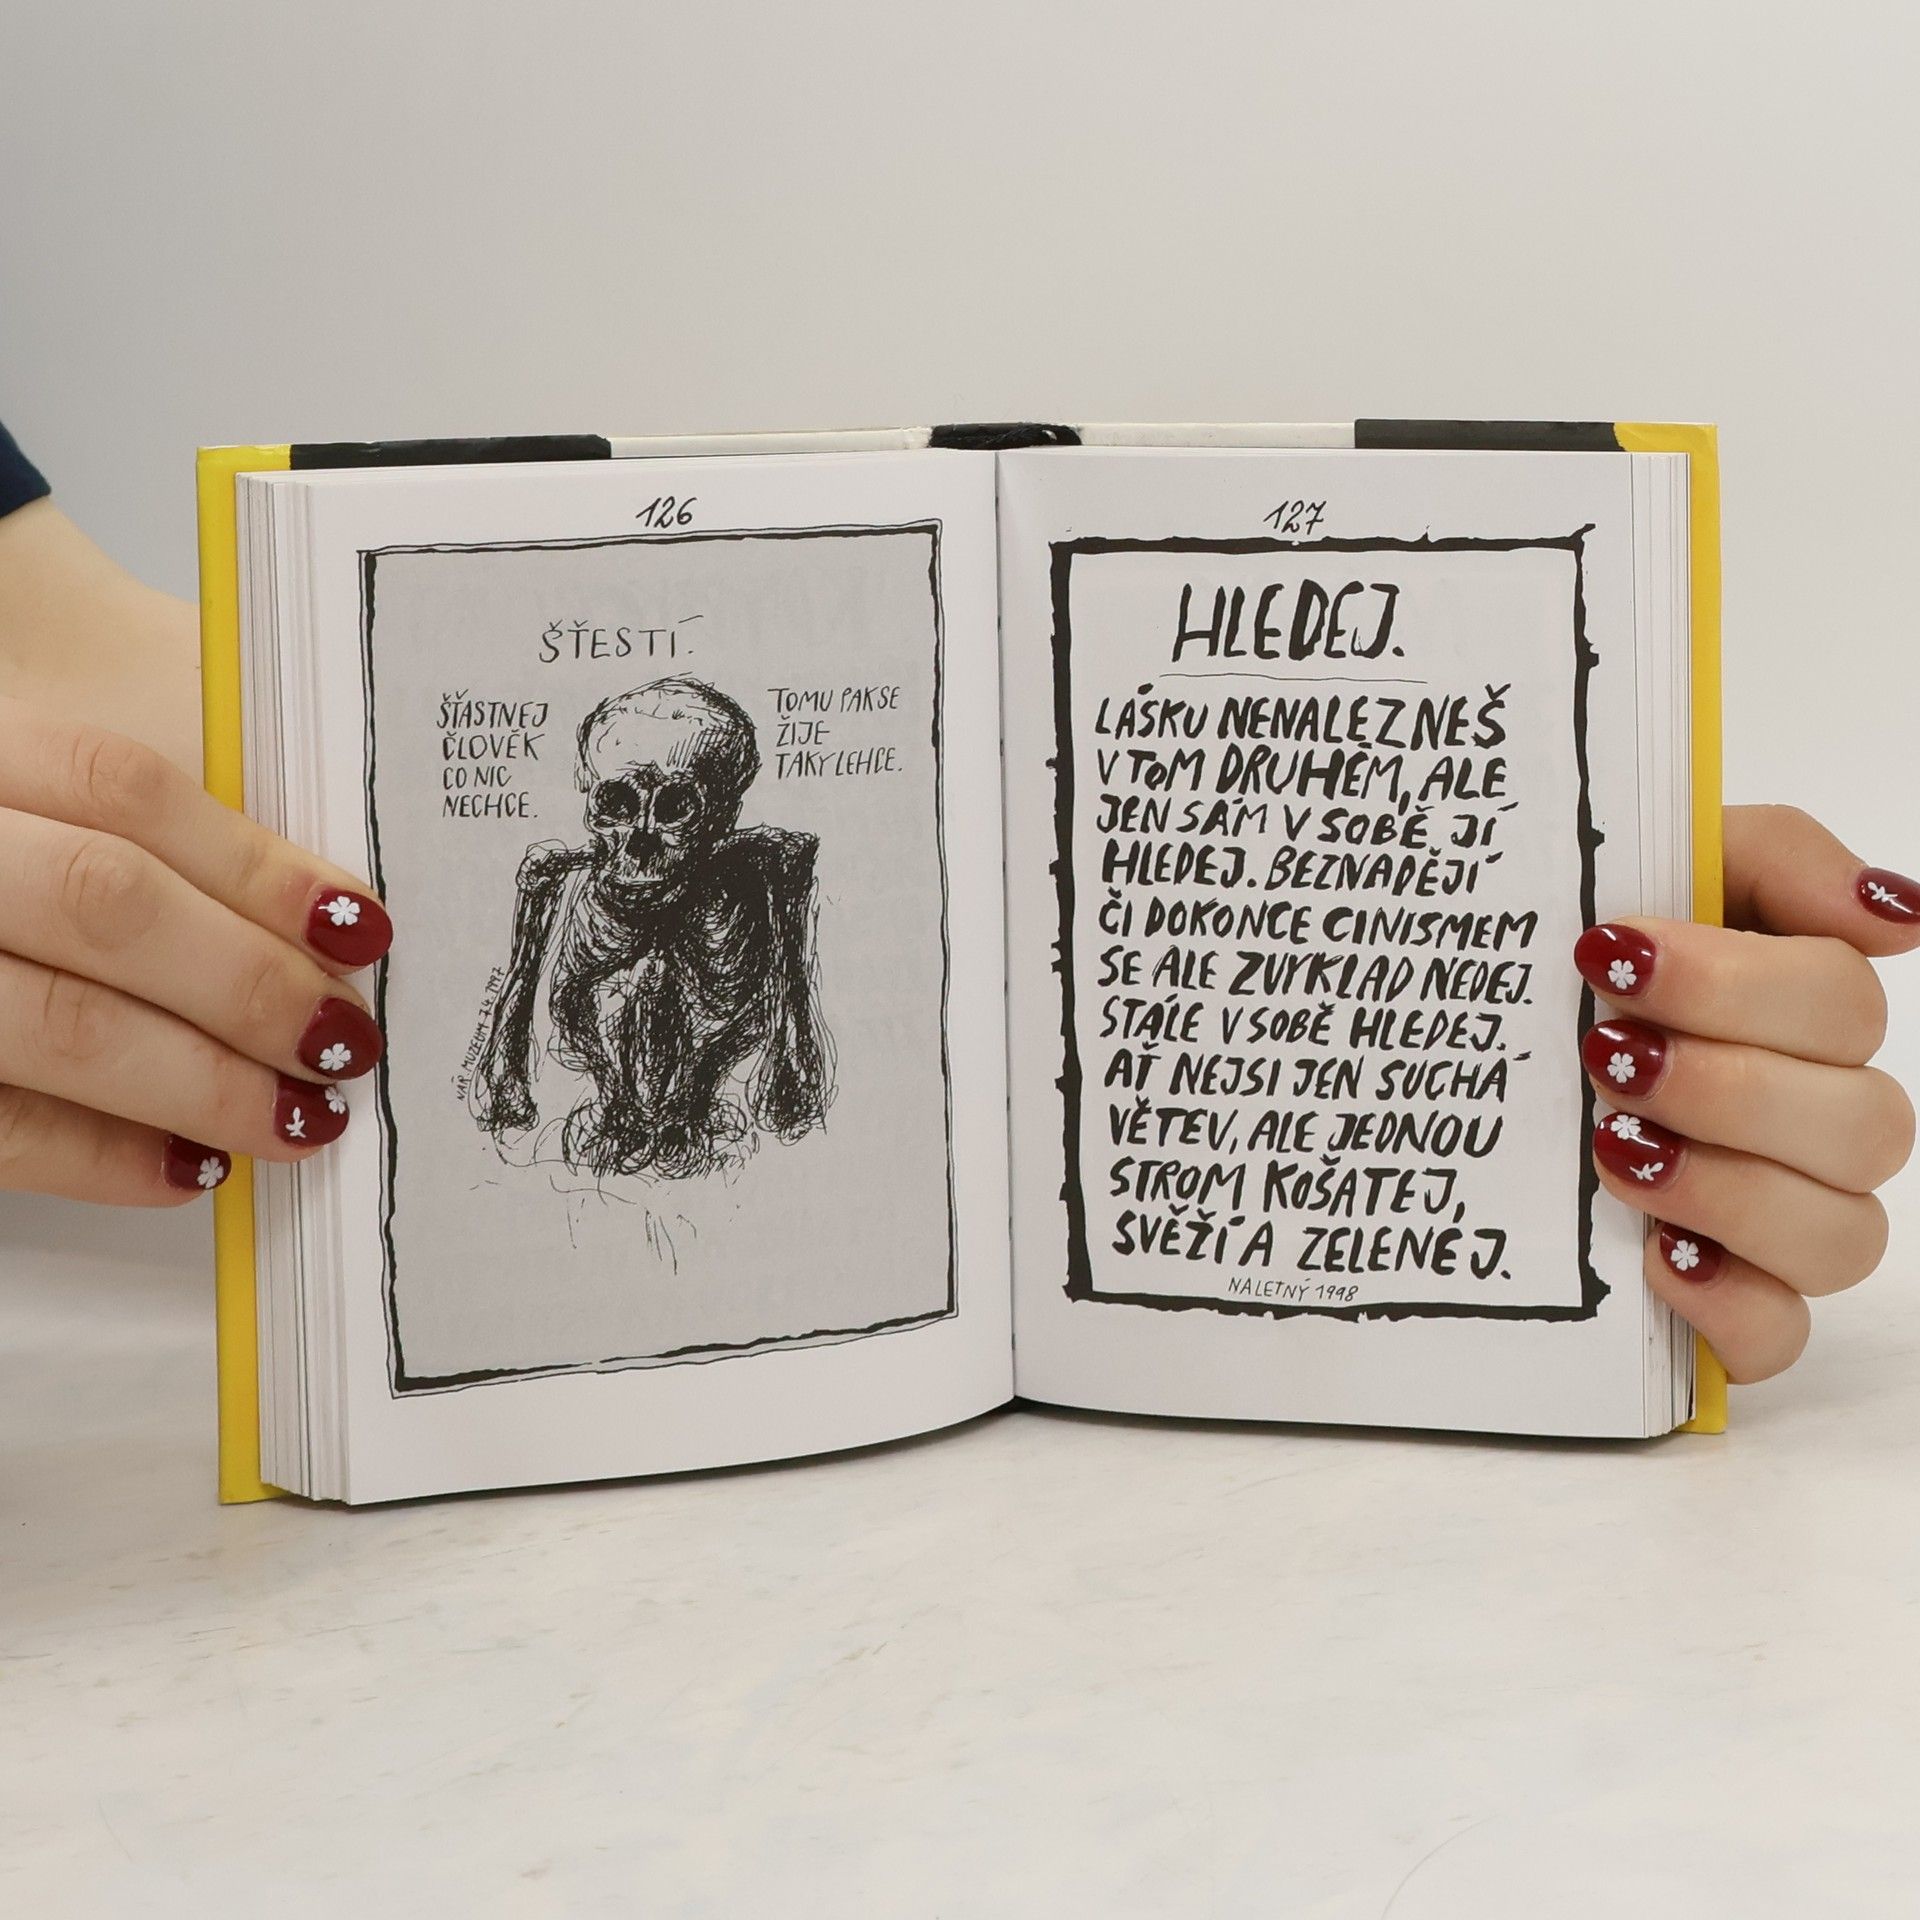 126
ŠŤESTÍ.
ŠŤASTNEJ
ČLOVĚK
CO NIC
NECHCE.
TOMU PAK SE
ŽIJE
TAKY LEHCE.
NÁR. MUZEUM 7.4.1997
127
HLEDEJ.
LÁSKU NENALEZNEŠ
V TOM DRUHÉM, ALE
JEN SÁM V SOBĚ JÍ
HLEDEJ. BEZNADĚJÍ
ČI DOKONCE CINISMEM
SE ALE ZVYKLAD NEDEJ.
STÁLE V SOBĚ HLEDEJ.
AŤ NEJSI JEN SUCHÁ
VĚTEV, ALE JEDNOU
STROM KOŠATEJ,
SVĚŽÍ A ZELENEJ.
NALETNÝ 1998